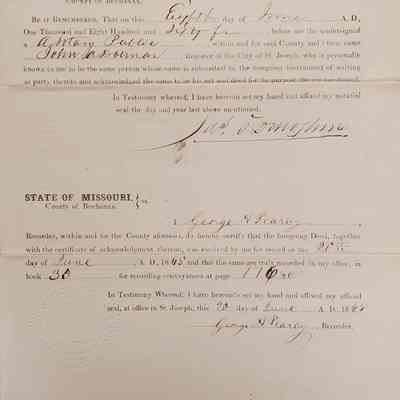 COUNTY OF BUCHANAN.
BE IT REMEMBERED, That on this Eighth day of June A. D.,
One Thousand and Eight Hundred and Sixty five before me the undersigned
a Notary Public within and for said County and State came
John Register of the City of St. Joseph, who is personally
known to me to be the same person whose name is subscribed to the foregoing instrument of writing
as party thereto and acknowledged the same to be his act and deed for the purpose therein mentioned.
In Testimony whereof, I have hereunto set my hand and affixed my notarial
seal the day and year last above mentioned.
STATE OF MISSOURI, } ss.
County of Buchanan.
I, George H Pearcy
Recorder, within and for the County aforesaid, do hereby certify that the foregoing Deed, together
with the certificate of acknowledgment thereon, was received by me for record on the 20th
day of June A. D. 1865 and that the same are truly recorded in my office, in
book 30 for recording conveyances at page 116
In Testimony Whereof, I have hereunto set my hand and affixed my official
seal, at office in St. Joseph, this 20 day of June A. D. 1865
George H Pearcy Recorder.